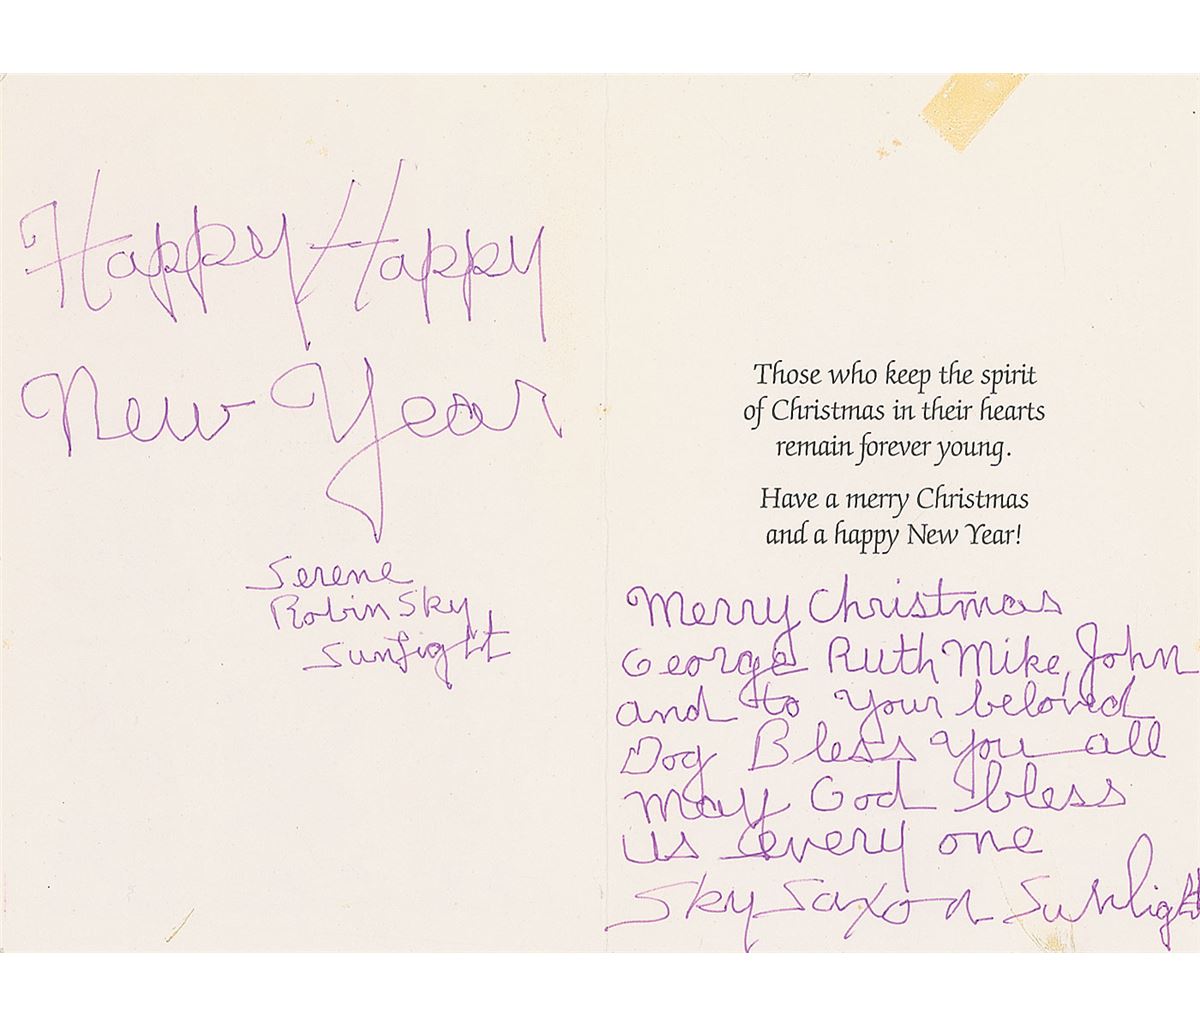 Happy Happy
New Year
Serene
Robin Sky
Sunlight
Those who keep the spirit
of Christmas in their hearts
remain forever young.
Have a merry Christmas
and a happy New Year!
Merry Christmas
George Ruth Mike, John
and to your beloved
Dog Bless You all
May God bless
us every one
Sky Saxon Sunlight